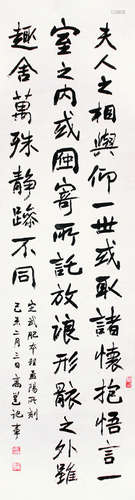 夫人之相與仰一世或取諸懷抱悟言一
室之内或因寄所託放浪形骸之外雖
趣舍萬殊靜躁不同
定武肥本
己亥二月三日
記事